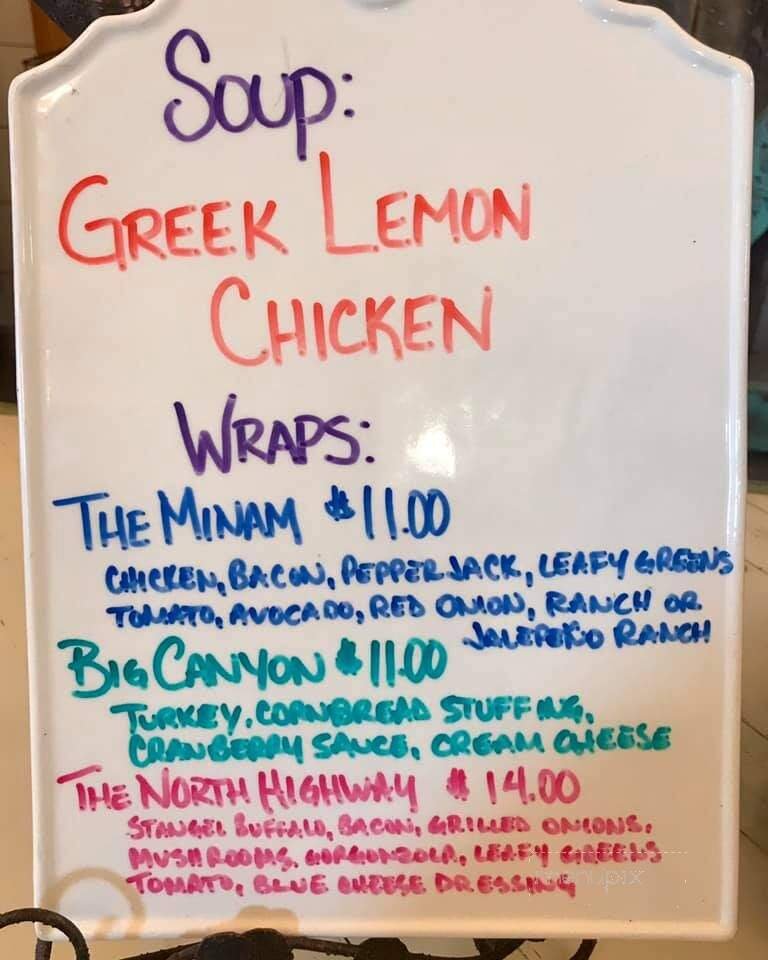 Soup:
GREEK LEMON
CHICKEN
WRAPS:
THE MINAM $11.00
CHICKEN, BACON, PEPPER JACK, LEAFY GREENS
TOMATO, AVOCADO, RED ONION, RANCH OR
JALEPEÑO RANCH
BIG CANYON $11.00
TURKEY, CORNBREAD STUFFING,
CRANBERRY SAUCE, CREAM CHEESE
THE NORTH HIGHWAY $14.00
STANGEL BUFFALO, BACON, GRILLED ONIONS,
MUSHROOMS, GORGONZOLA, LEAFY GREENS
TOMATO, BLUE CHEESE DRESSING
menupix